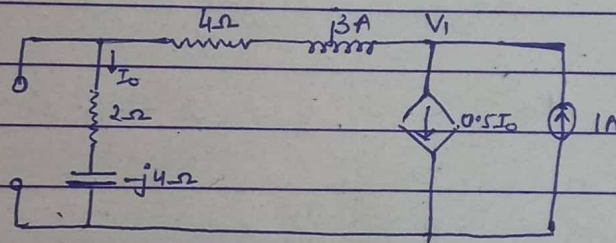 4Ω j3A V1
I0
2Ω 0.5I0 1A
-j4Ω